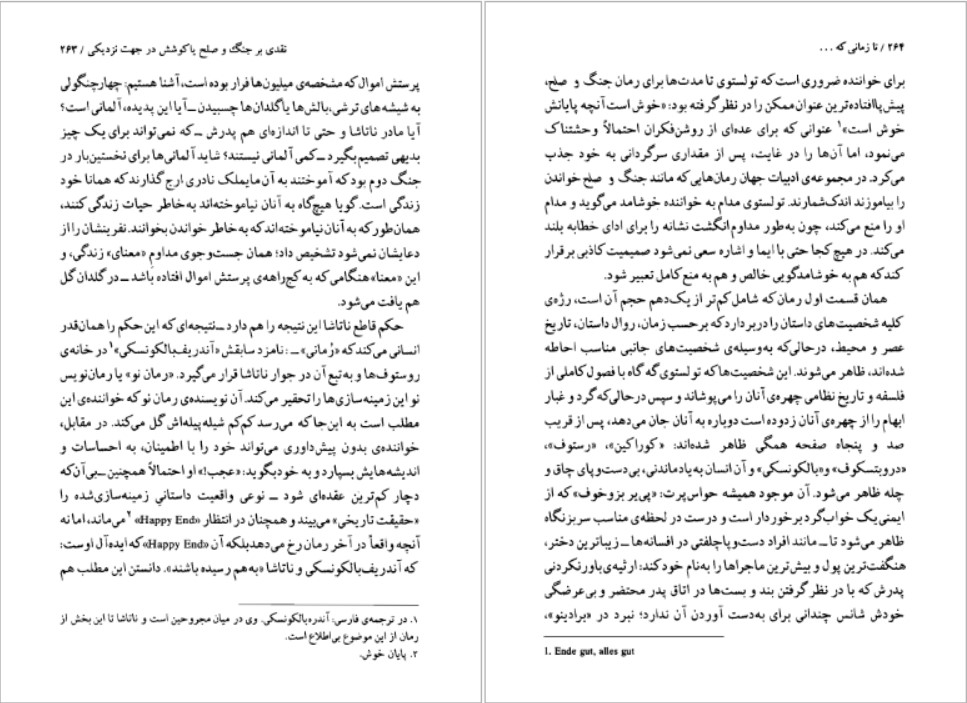 نقدی بر جنگ و صلح یا کوشش در جهت نزدیکی / ۲۶۳
پرستش اموال که مشخصه‌ی میلیون‌ها فرار بوده است، آشنا هستیم: چهارچنگولی
به شیشه‌های ترشی، بالش‌ها یا گلدان‌ها چسبیدن ـ آیا این پدیده، آلمانی است؟
آیا مادر ناتاشا و حتی تا اندازه‌ای هم پدرش ـ که نمی‌تواند برای یک چیز
بدیهی تصمیم بگیرد ـ کمی آلمانی نیستند؟ شاید آلمانی‌ها برای نخستین‌بار در
جنگ دوم بود که آموختند به آن مایملک نادری ارج گذارند که همانا خود
زندگی است. گویا هیچ‌گاه به آنان نیاموخته‌اند به‌خاطر حیات زندگی کنند،
همان‌طور که به آنان نیاموخته‌اند که به خاطر خواندن بخوانند. نفرینشان را از
دعایشان نمی‌شود تشخیص داد؛ همان جست‌وجوی مداوم «معنای» زندگی، و
این «معنا» هنگامی که به کج‌راهه‌ی پرستش اموال افتاده باشد ـ در گلدان گل
هم یافت می‌شود.
حکم قاطع ناتاشا این نتیجه را هم دارد ـ نتیجه‌ای که این حکم را همان‌قدر
انسانی می‌کند که «رُمانی» ـ : نامزد سابقش «آندریف‌بالکونسکی»۱ در خانه‌ی
روستوف‌ها و به‌تبع آن در جوار ناتاشا قرار می‌گیرد. «رمان نو» یا رمان‌نویس
نو این زمینه‌سازی‌ها را تحقیر می‌کند. آن نویسنده‌ی رمان نو که خواننده‌ی این
مطلب است به این‌جا که می‌رسد کم‌کم شیله پیله‌اش گل می‌کند. در مقابل،
خواننده‌ی بدون پیش‌داوری می‌تواند خود را با اطمینان، به احساسات و
اندیشه‌هایش بسپارد و به خود بگوید: «عجب!» او احتمالاً همچنین ـ بی‌آن‌که
دچار کم‌ترین عقده‌ای شود ـ نوعی واقعیت داستانیِ زمینه‌سازی‌شده را
«حقیقت تاریخی» می‌بیند و همچنان در انتظار «Happy End»۲ می‌ماند، اما نه
آنچه واقعاً در آخر رمان رخ می‌دهد بلکه آن «Happy End» که ایده‌آل اوست:
که آندریف‌بالکونسکی و ناتاشا «به‌هم رسیده باشند». دانستن این مطلب هم
۱. در ترجمه‌ی فارسی: آندره‌بالکونسکی. وی در میان مجروحین است و ناتاشا تا این بخش از
رمان از این موضوع بی‌اطلاع است.
۲. پایان خوش.
۲۶۴ / تا زمانی که ...
برای خواننده ضروری است که تولستوی تا مدت‌ها برای رمان جنگ و صلح،
پیش‌پاافتاده‌ترین عنوان ممکن را در نظر گرفته بود: «خوش است آنچه پایانش
خوش است»۱ عنوانی که برای عده‌ای از روشن‌فکران احتمالاً وحشتناک
می‌نمود، اما آن‌ها را در غایت، پس از مقداری سرگردانی به خود جذب
می‌کرد. در مجموعه‌ی ادبیات جهان رمان‌هایی که مانند جنگ و صلح خواندن
را بیاموزند اندک‌شمارند. تولستوی مدام به خواننده خوشامد می‌گوید و مدام
او را منع می‌کند، چون به‌طور مداوم انگشت نشانه را برای ادای خطابه بلند
می‌کند. در هیچ کجا حتی با ایما و اشاره سعی نمی‌شود صمیمیت کاذبی برقرار
کند که هم به خوشامدگویی خالص و هم به منع کامل تعبیر شود.
همان قسمت اول رمان که شامل کم‌تر از یک‌دهم حجم آن است، رژه‌ی
کلیه شخصیت‌های داستان را دربر دارد که برحسب زمان، روال داستان، تاریخ
عصر و محیط، درحالی‌که به‌وسیله‌ی شخصیت‌های جانبی مناسب احاطه
شده‌اند، ظاهر می‌شوند. این شخصیت‌ها که تولستوی گه گاه با فصول کاملی از
فلسفه و تاریخ نظامی چهره‌ی آنان را می‌پوشاند و سپس درحالی‌که گرد و غبار
ابهام را از چهره‌ی آنان زدوده است دوباره به آنان جان می‌دهد، پس از قریب
صد و پنجاه صفحه همگی ظاهر شده‌اند: «کوراگین»، «رستوف»،
«دروبتسکوف» و «بالکونسکی» و آن انسان به‌یادماندنی، بی‌دست‌وپای چاق و
چله ظاهر می‌شود. آن موجود همیشه حواس‌پرت: «پی‌یر بزوخوف» که از
ایمنی یک خواب‌گرد برخوردار است و درست در لحظه‌ی مناسب سر بزنگاه
ظاهر می‌شود تا ـ مانند افراد دست‌وپاچلفتی در افسانه‌ها ـ زیباترین دختر،
هنگفت‌ترین پول و بیش‌ترین ماجراها را به‌نام خود کند: ارثیه‌ی باورنکردنی
پدرش که با در نظر گرفتن بند و بست‌ها در اتاق پدر محتضر و بی‌عرضگی
خودش شانس چندانی برای به‌دست آوردن آن ندارد؛ نبرد در «برادینو»،
1. Ende gut, alles gut